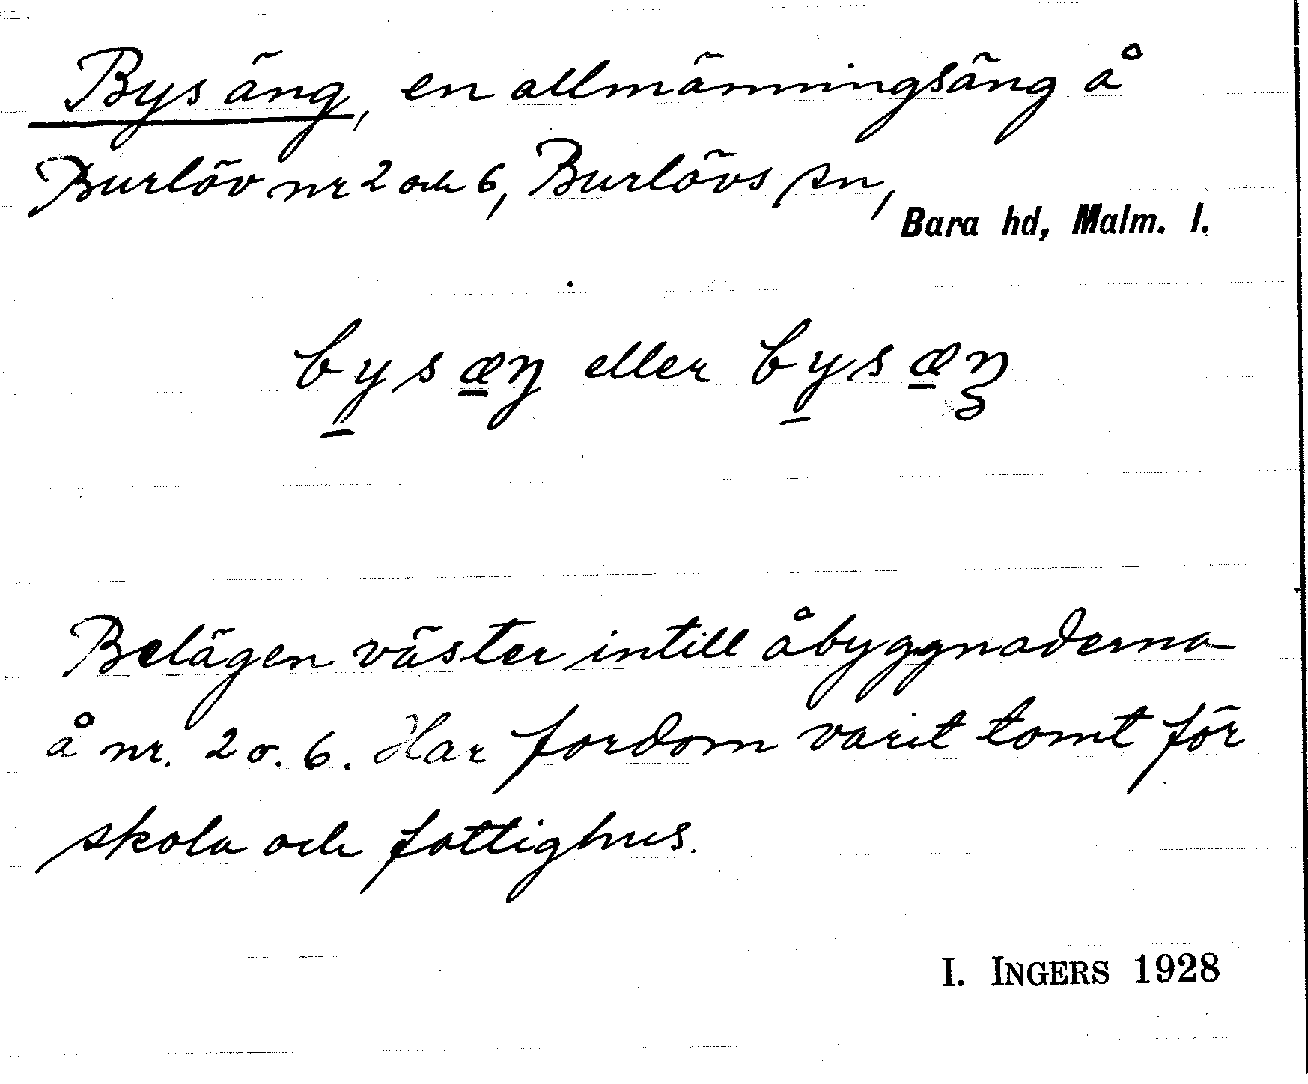 Bysäng, en allmänningsäng å
Burlöv nr 2 och 6, Burlövs sn,
Bara hd, Malm. l.
bysæŋ eller bysæŋ
Belägen väster intill åbyggnaderna
å nr. 2 o. 6. Har fordom varit tomt för
skola och fattighus.
I. INGERS 1928